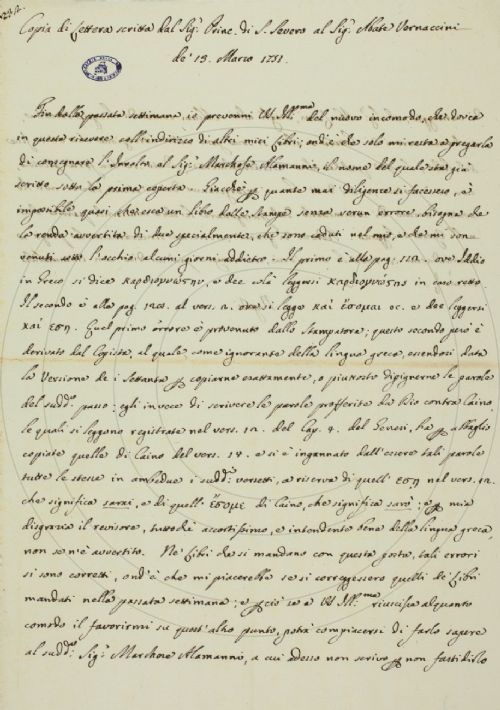 Copia di Lettera scritta dal Sigr. Princ. di S. Severo al Sigr. Abate Vernaccini
de' 13. Marzo 1751.
Fin dalla passata settimana io prevenni VS. Ill.ma del nuovo incomodo, che dovea
in questa ricevere coll'indirizzo di altri miei Libri; ond'è che solo mi resta a pregarla
di consegnare l'Involto al Sigr. Marchese Alamanni, il nome del quale sta già
scritto sotto la prima coperta. Giacchè p quante mai diligenze si facessero, è
impossibile quasi che esca un libro dalle Stampe senza verun errore, bisogna che
la renda avvertita di due specialmente, che sono caduti nel mio, e che mi son
venuti sotto l'occhio alcuni giorni addietro. Il primo è alla pag. 112. ove Iddio
in Greco si dice καρδιογνώστην, e dee colà leggersi καρδιογνώστης in caso retto.
Il secondo è alla pag. al vers. 2. ove si legge καὶ ἔσομαι ec. e dee leggersi
καὶ ἔση. Quel primo errore è provenuto dallo Stampatore; questo secondo però è
derivato dal Copista, al quale come ignorante della lingua greca, essendosi data
la Versione de i Settanta p copiarne esattamente, o piuttosto dipignerne le parole
del sudd.o passo: egli in vece di scrivere le parole profferite da Dio contra Caino,
le quali si leggono registrate nel vers. 12. del Cap. 4. del Genesi, ha p abbaglio
copiate quelle di Caino del vers. 14. e si è ingannato dall'essere tali parole
tutte le stesse in ambedue i sudd.i versetti, a riserva di quell' ἔση nel vers. 12.
che significa sarai, e di quell' ἔσομαι di Caino, che significa sarò; e p mia
disgrazia il revisore, tuttochè accortissimo, e intendente bene della lingua greca,
non se n'è avvertito. Ne' Libri che si mandano con questa posta, tali errori
si sono corretti, ond'è che mi piacerebbe se si correggessero quelli de' Libri
mandati nella passata settimana; e p ciò se a VS. Ill.ma riuscisse alquanto
comodo il favorirmi su quest'altro punto, potrà compiacersi di farlo sapere
al sudd.o Sigr. Marchese Alamanni, a cui adesso non scrivo p non fastidirlo